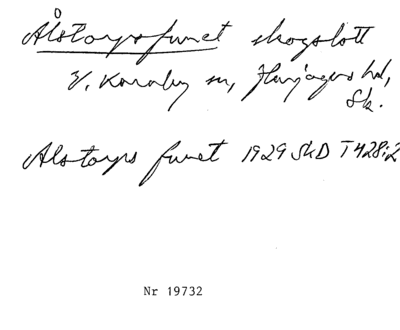 Ålstorpsfuret skogslott
V. Karaby sn, Harjagers hd,
Sk.
Alstorps furet 1929 SkD T428:2
Nr 19732